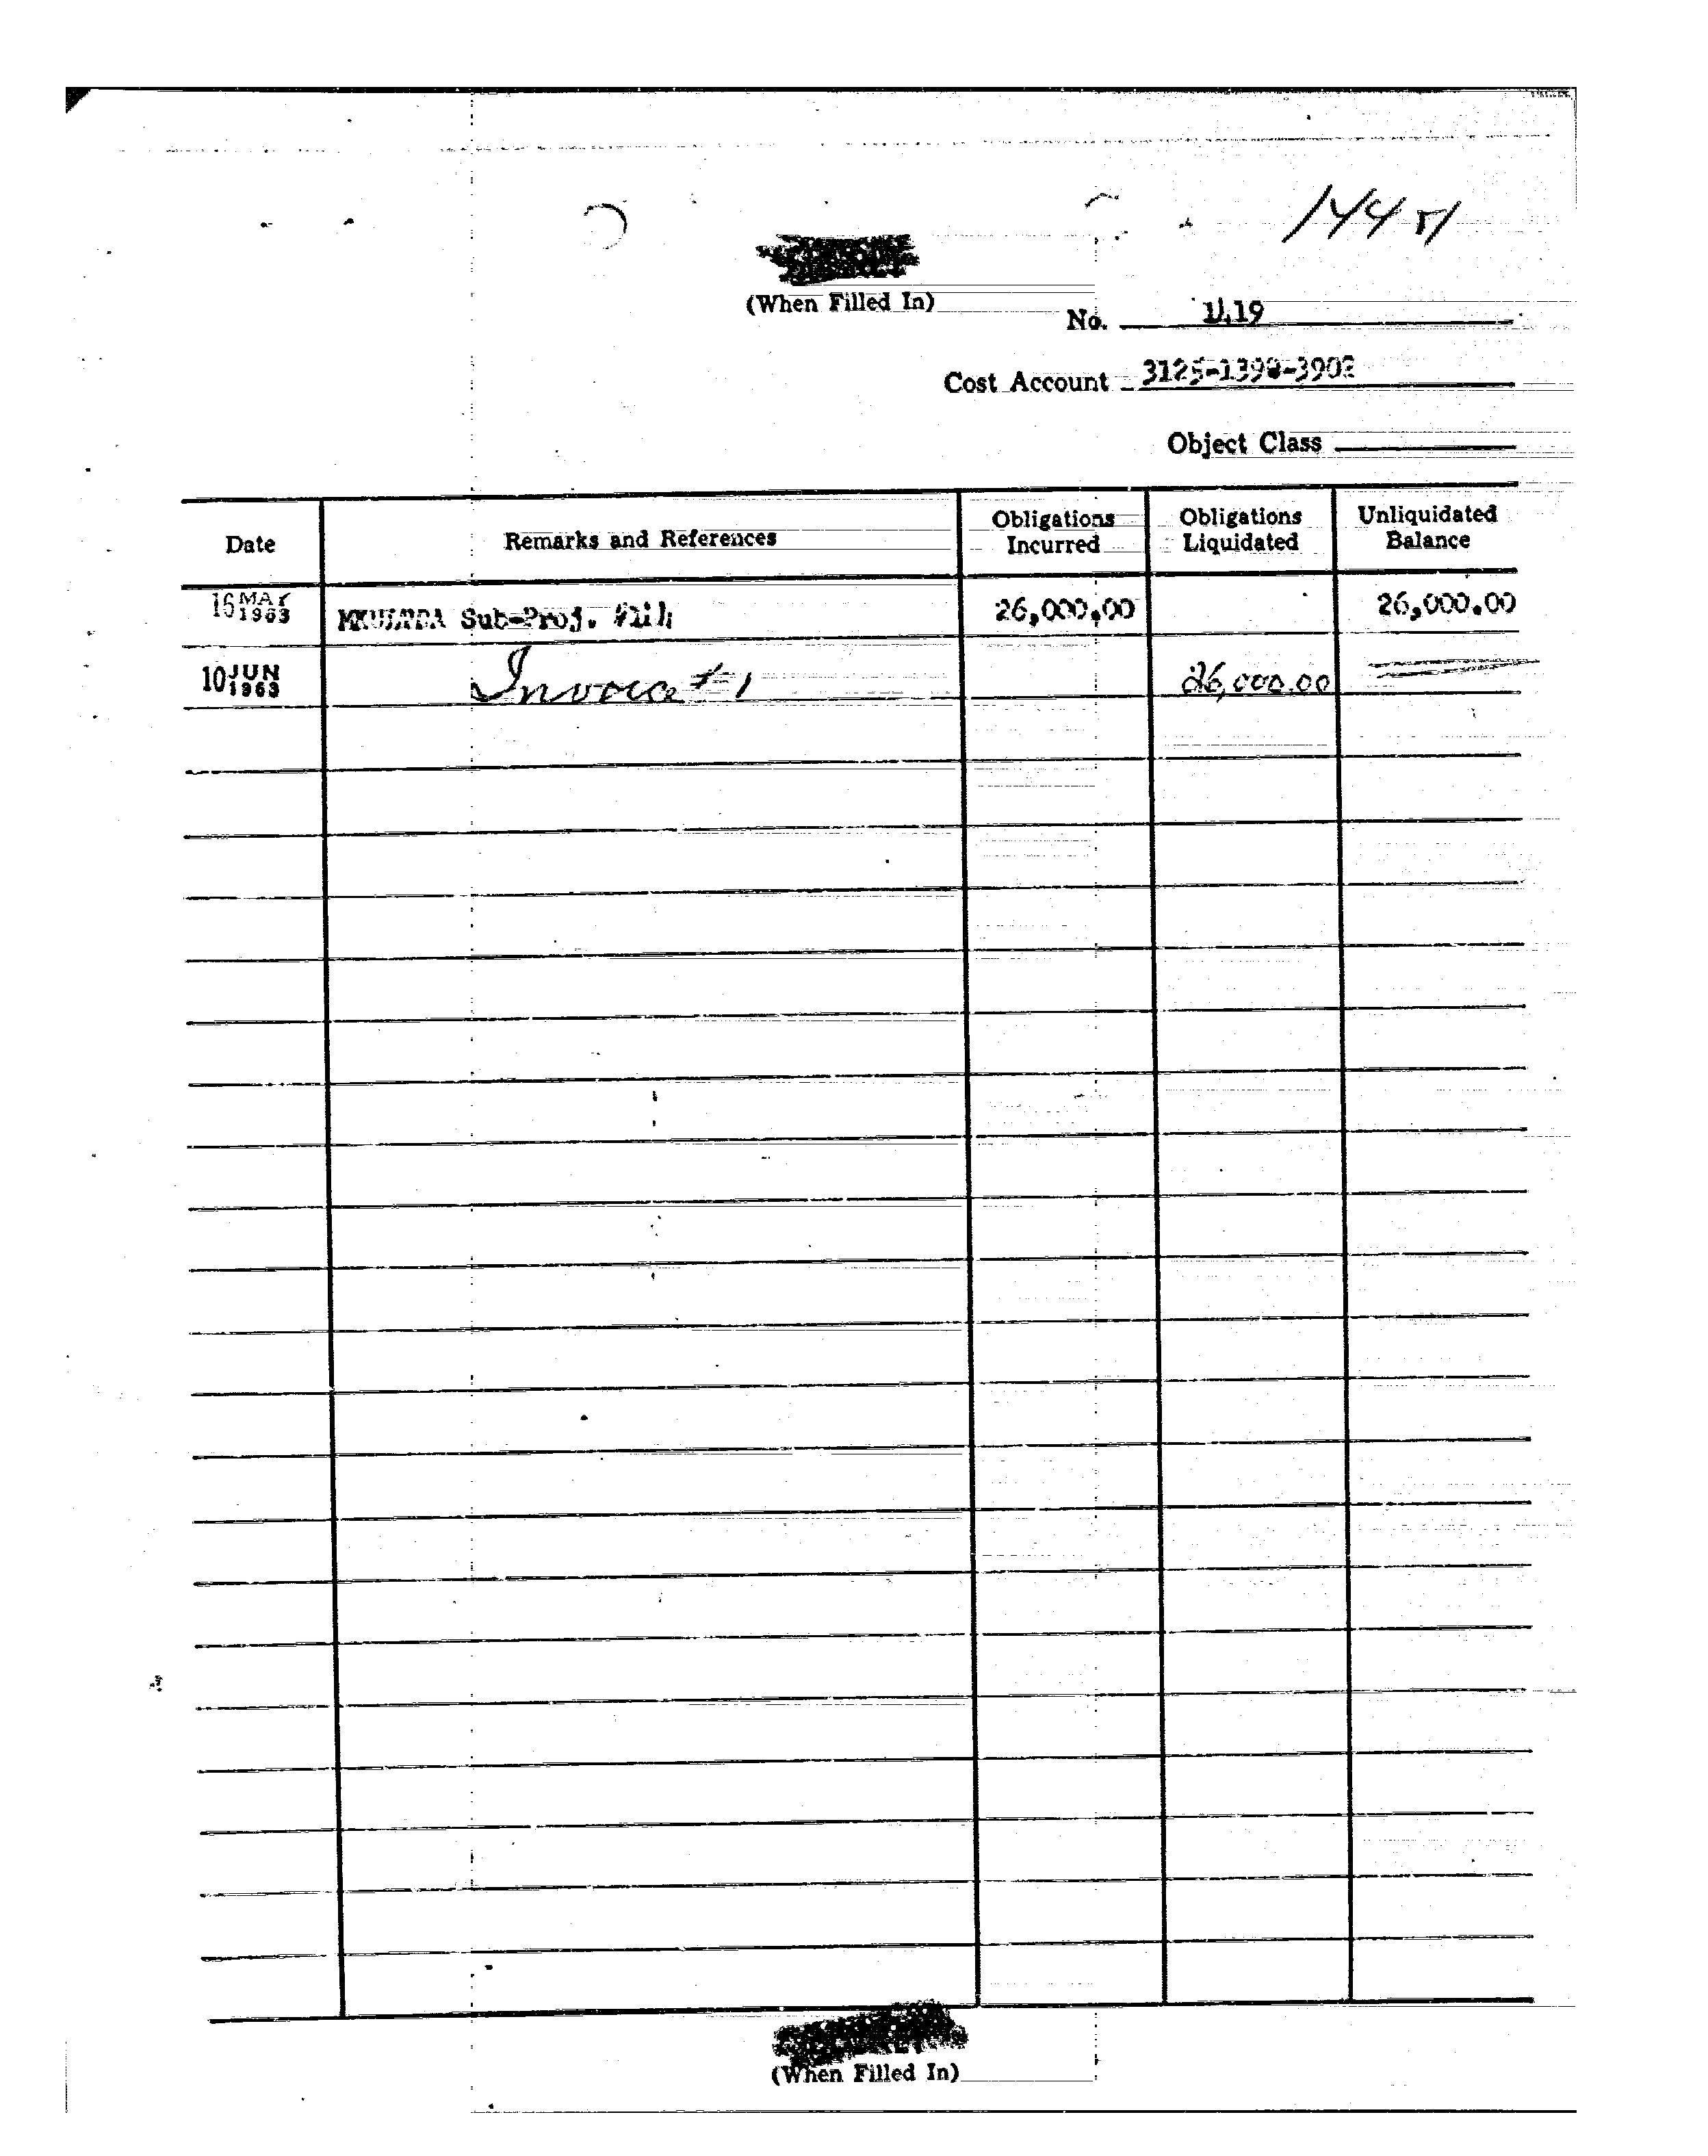 (When Filled In)
No.
Cost Account 3125-1390-3902
Object Class
Date Remarks and References Obligations Incurred Obligations Liquidated Unliquidated Balance
16 MAY 1963 MKULTRA Sub-Proj. 26,000.00 26,000.00
10 JUN 1963 Invoice #1 26,000.00
(When Filled In)